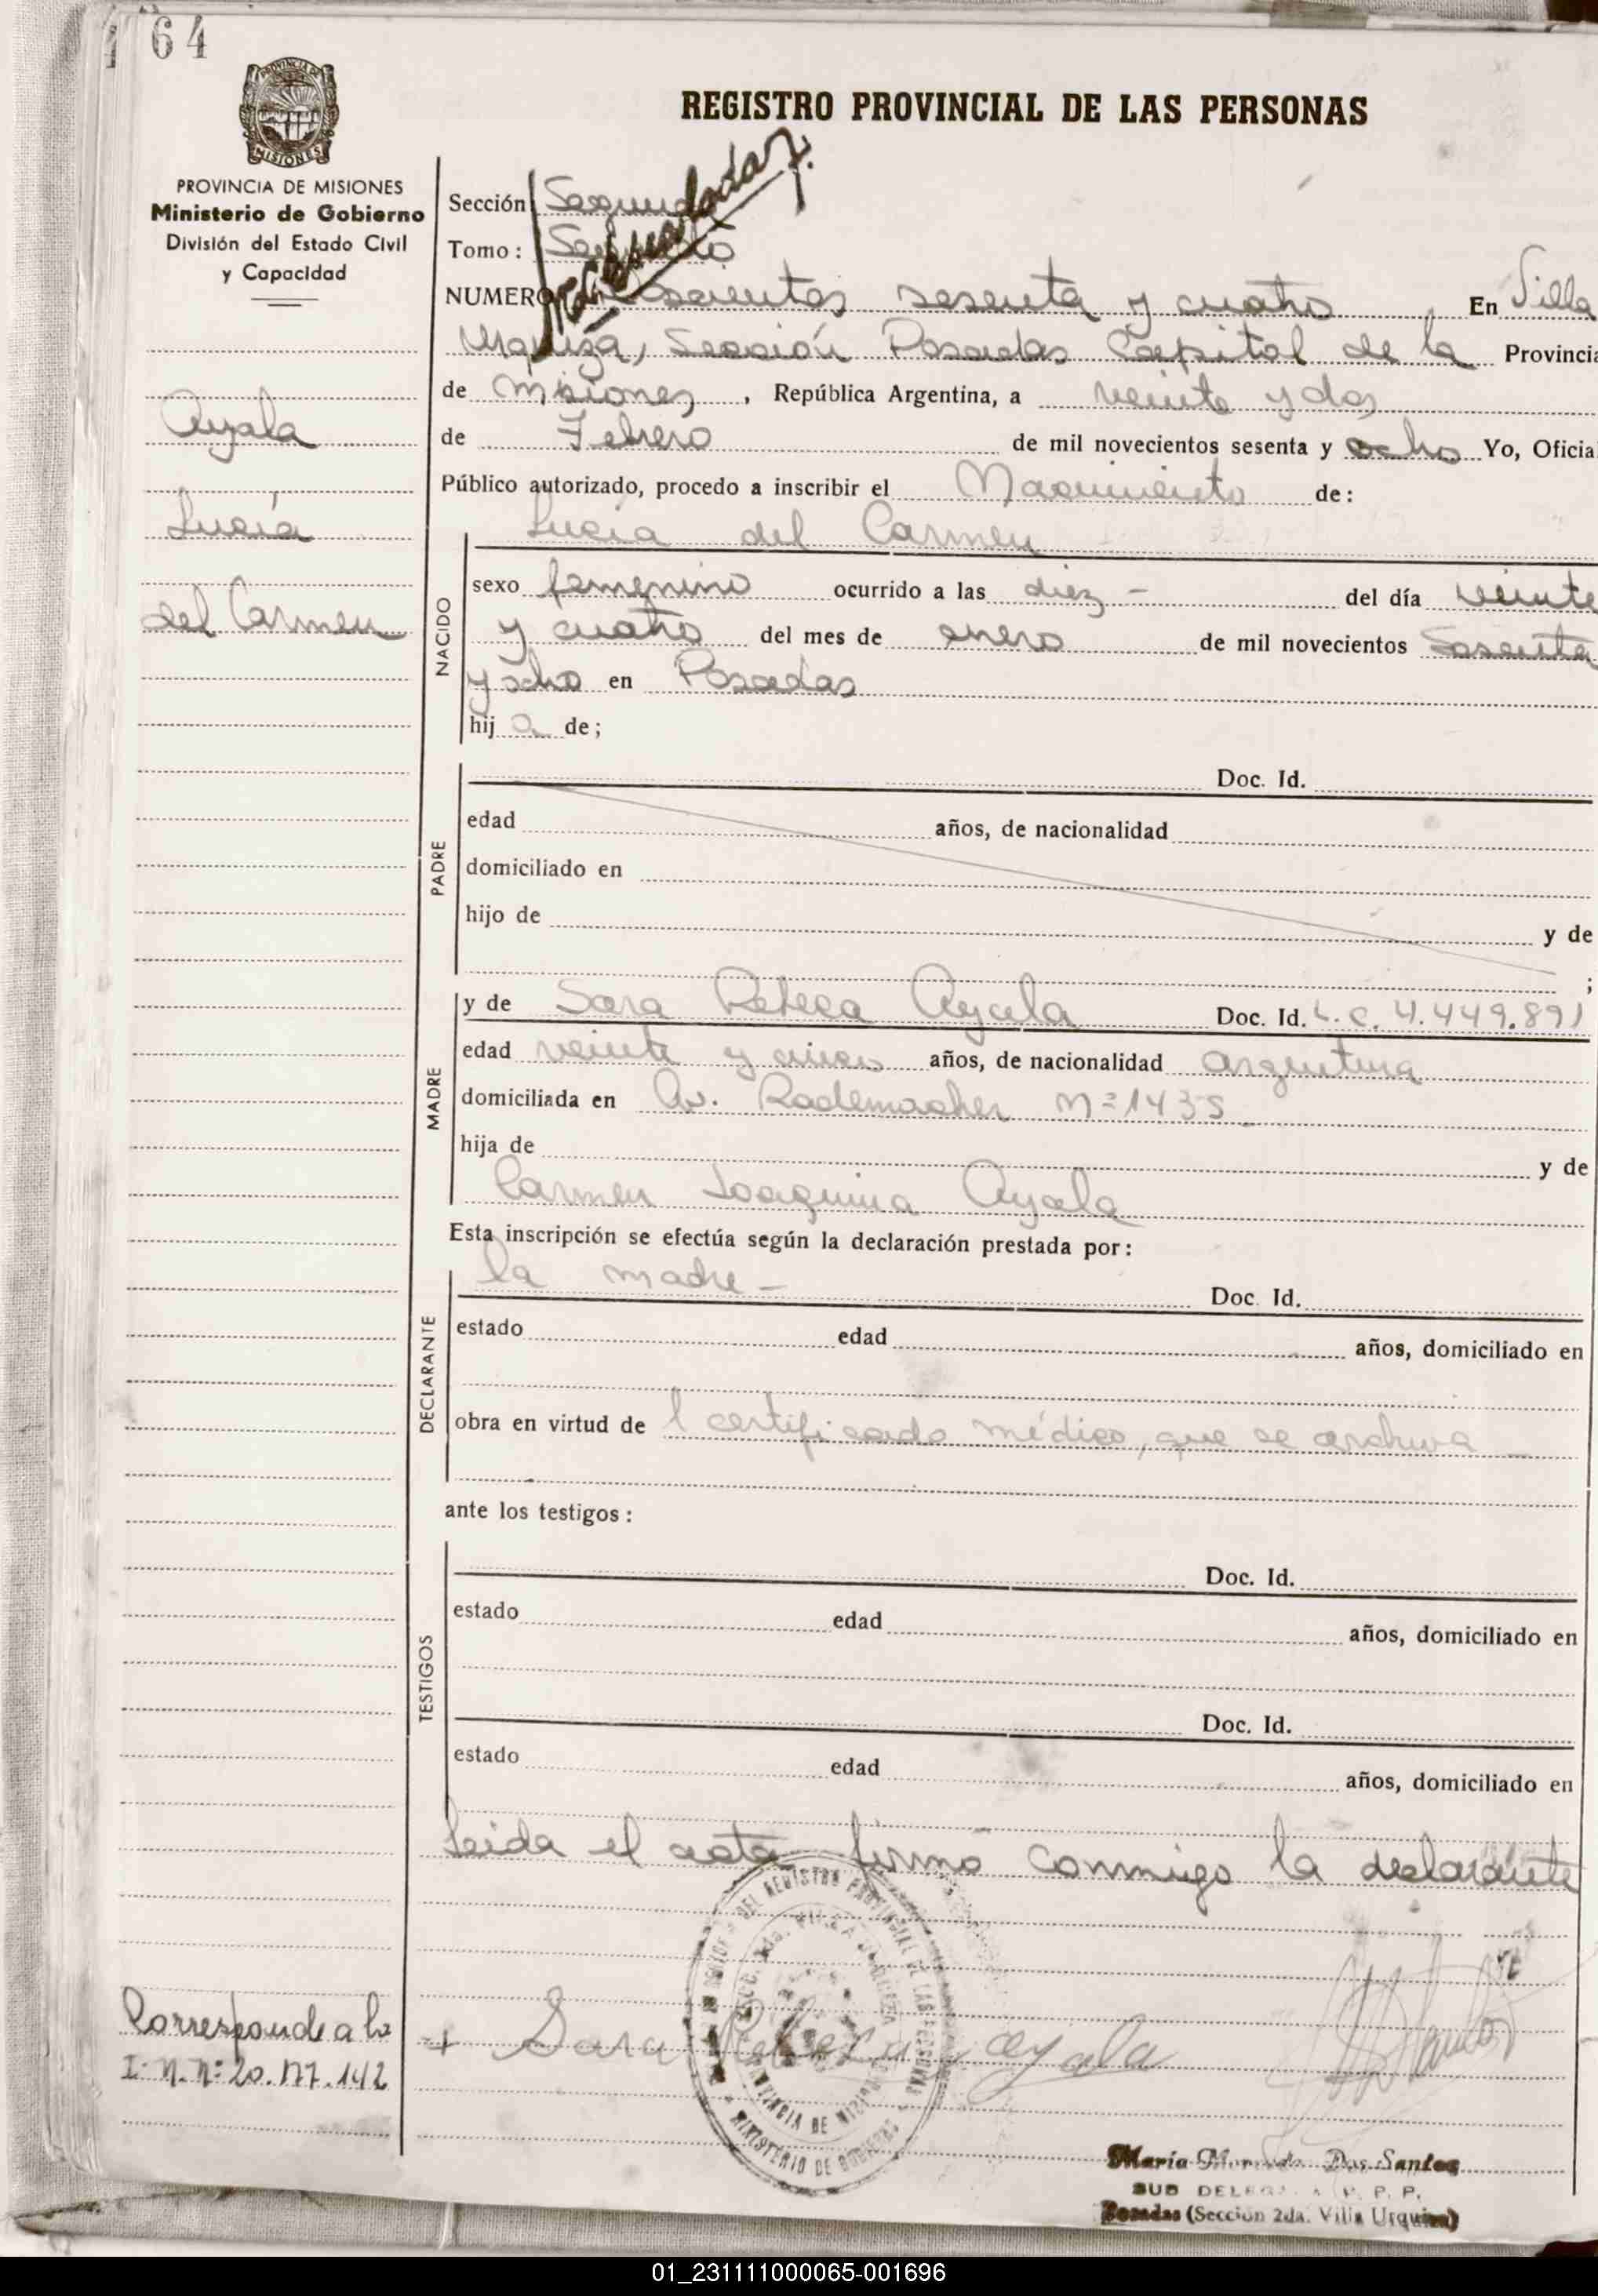 64
PROVINCIA DE MISIONES
PROVINCIA DE MISIONES
Ministerio de Gobierno
División del Estado Civil
y Capacidad
Ayala
Lucía
del Carmen
Corresponde a la
I. N. Nº 20.177.142
REGISTRO PROVINCIAL DE LAS PERSONAS
Sección Segunda
Tomo:
NUMERO sesenta y cuatro En Villa
Urquiza, Sección Posadas Capital de la Provincia
de Misiones, República Argentina, a veinte y dos
de Febrero de mil novecientos sesenta y ocho Yo, Oficial
Público autorizado, procedo a inscribir el Nacimiento de:
Lucía del Carmen
NACIDO
sexo femenino ocurrido a las diez - del día veinte
y cuatro del mes de enero de mil novecientos sesenta
y ocho en Posadas
hij a de;
PADRE
Doc. Id.
edad años, de nacionalidad
domiciliado en
hijo de y de
;
MADRE
y de Sara Rebeca Ayala Doc. Id. L. C. 4.449.891
edad veinte y cinco años, de nacionalidad argentina
domiciliada en Av. Rademacher Nº 1435
hija de y de
Carmen Joaquina Ayala
Esta inscripción se efectúa según la declaración prestada por:
DECLARANTE
la madre - Doc. Id.
estado edad años, domiciliado en
obra en virtud de l certificado médico, que se archiva -
ante los testigos:
TESTIGOS
Doc. Id.
estado edad años, domiciliado en
Doc. Id.
estado edad años, domiciliado en
Leida el acta firmó conmigo la declarante
Sara Rebeca Ayala
DEL REGISTRO PROVINCIAL DE LAS PERSONAS
PROVINCIA DE MISIONES
MINISTERIO DE GOBIERNO
María Dos Santos
SUB R. P. P.
Posadas (Sección 2da. Villa Urquiza)
01_231111000065-001696